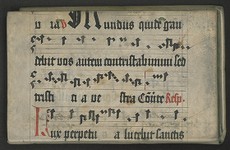 o ia Mundus quide gau
debit vos autem contristabimini sed
tristi a ve stra Resp.
Lux perpetu a lucebit sanctis